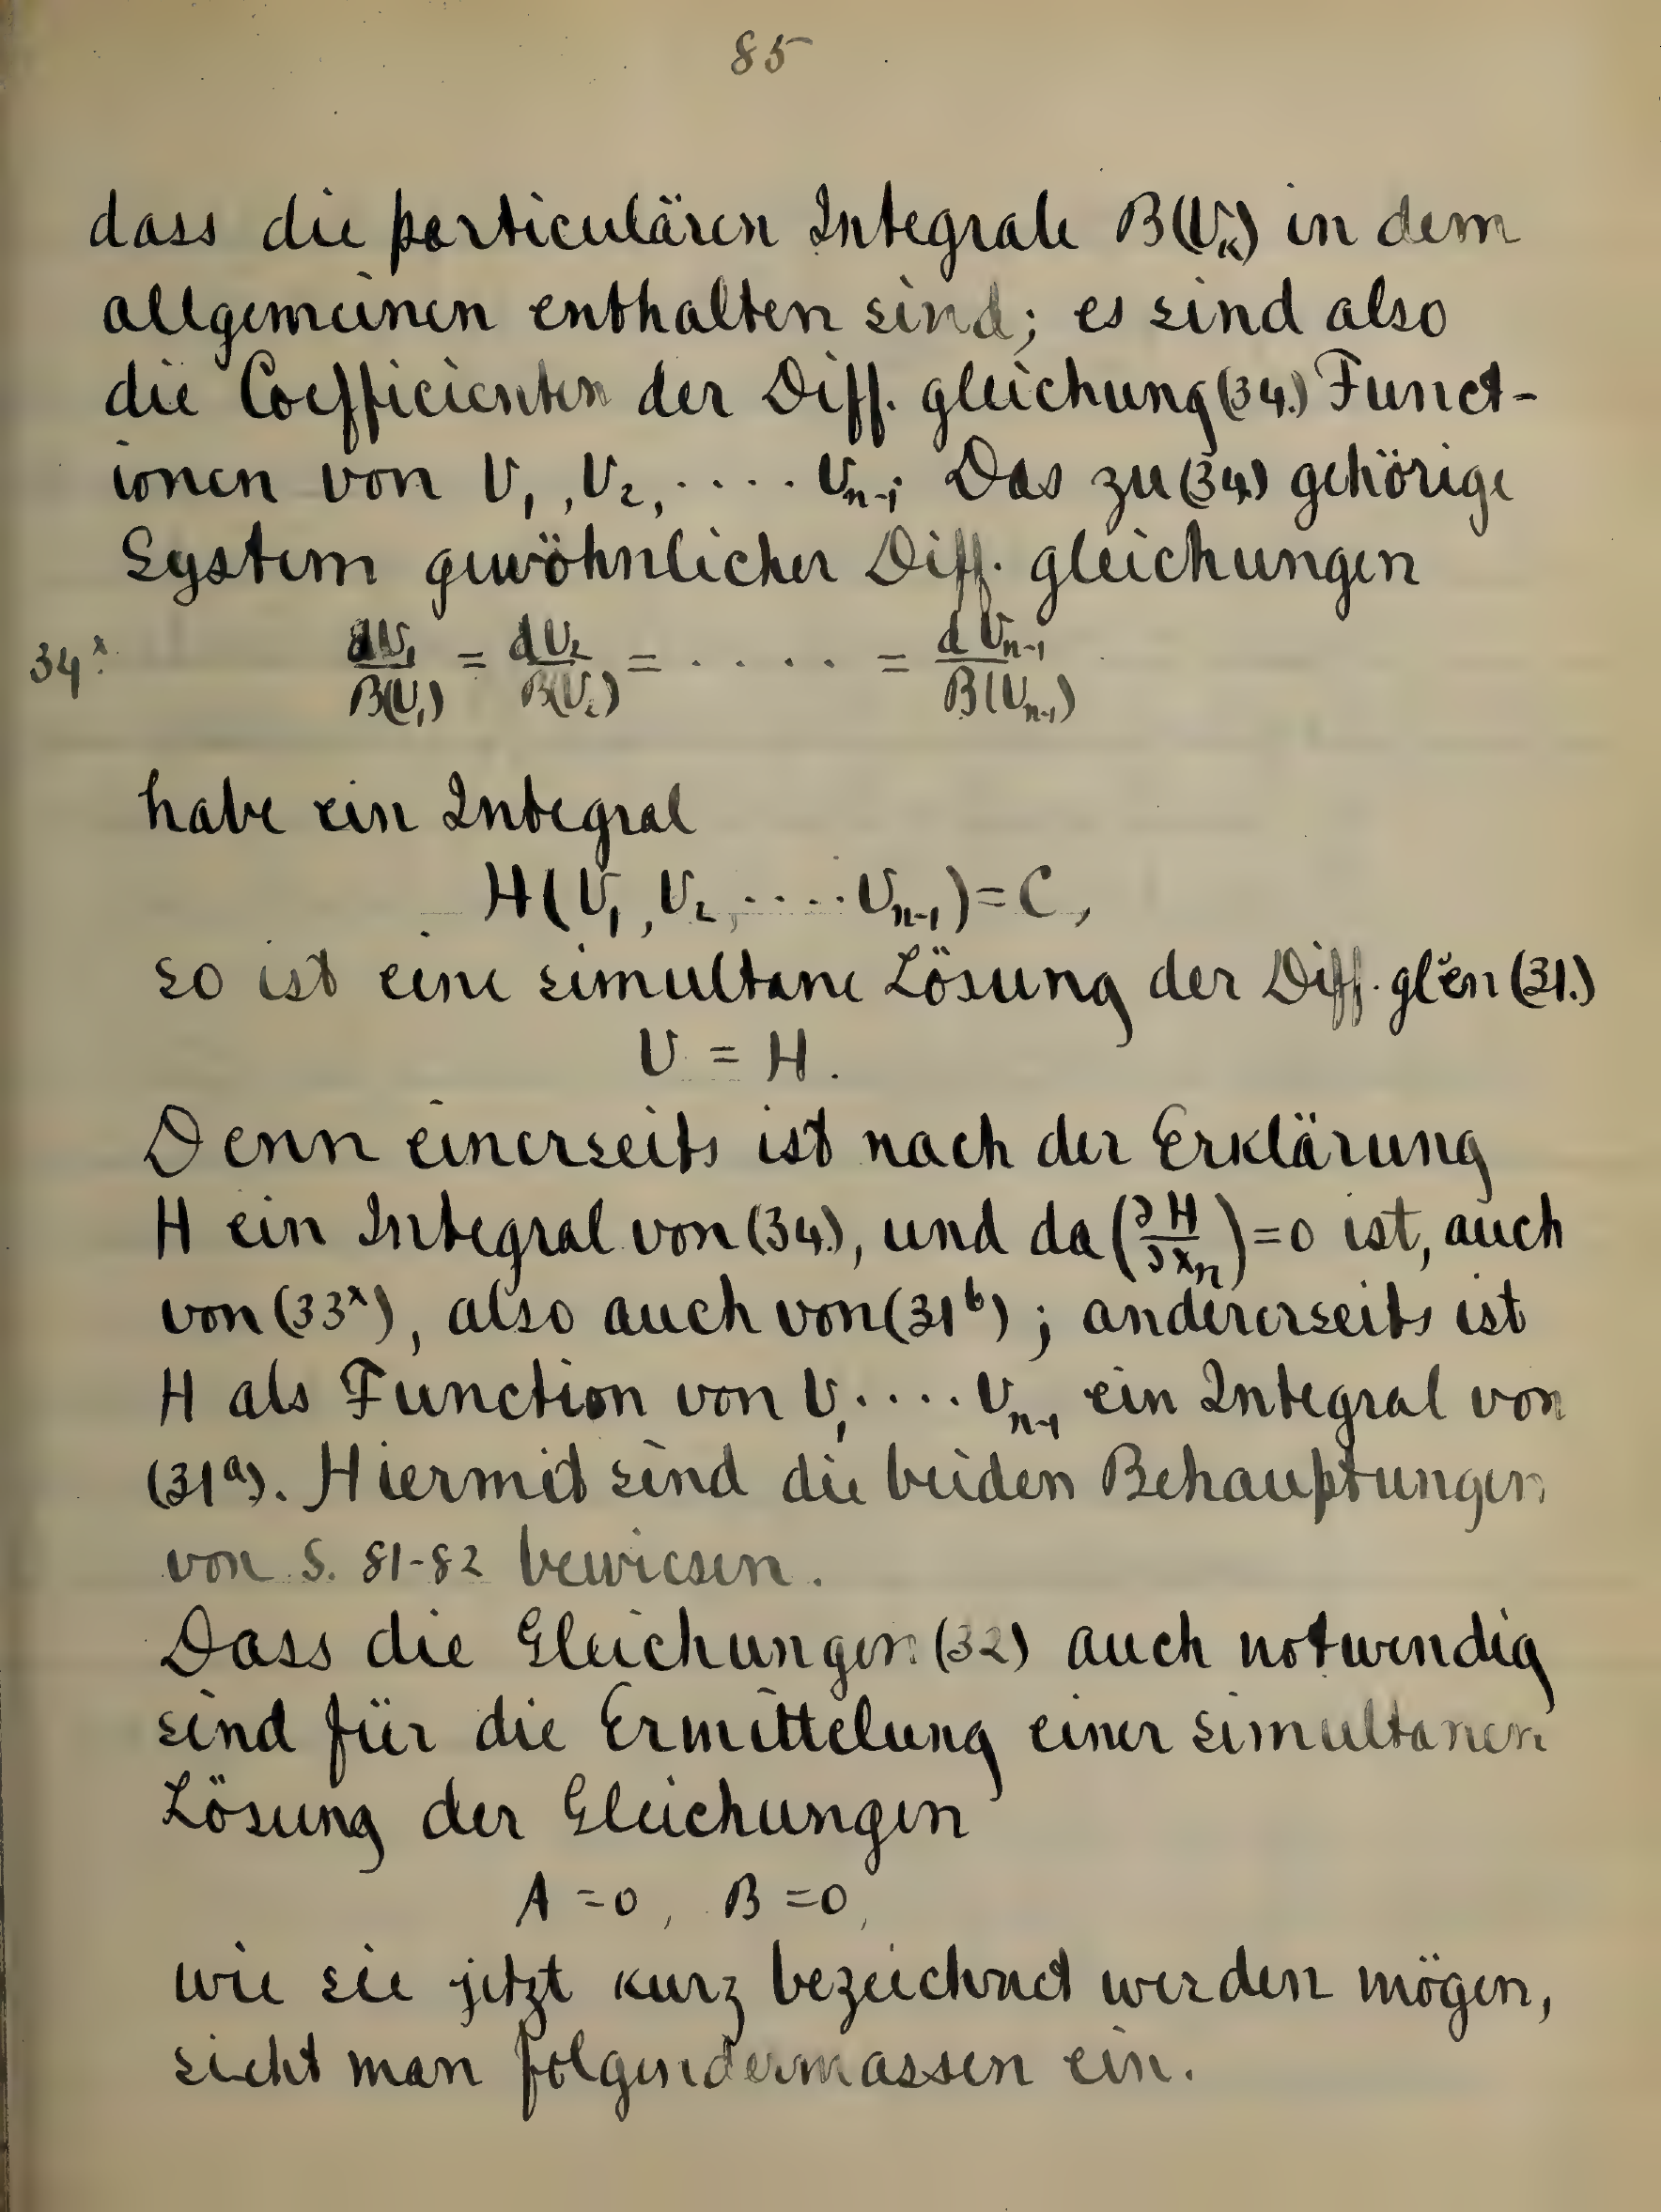 85
dass die particulären Integrale B(U_κ) in dem
allgemeinen enthalten sind; es sind also
die Coefficienten der Diff. gleichung (34.) Funct-
ionen von U₁, U₂, ····· U_{n-1}. Das zu (34.) gehörige
System gewöhnlicher Diff. gleichungen
34ˣ. dU₁/B(U₁) = dU₂/B(U₂) = ····· = dU_{n-1}/B(U_{n-1})
habe ein Integral
H(U₁, U₂, ····· U_{n-1}) = C,
so ist eine simultane Lösung der Diff. glen (31.)
U = H.
Denn einerseits ist nach der Erklärung
H ein Integral von (34.), und da (∂H/∂x_n) = 0 ist, auch
von (33ˣ), also auch von (31ᵇ); andererseits ist
H als Function von U₁ ···· U_{n-1} ein Integral von
(31ᵃ). Hiermit sind die beiden Behauptungen
von S. 81-82 bewiesen.
Dass die Gleichungen (32) auch notwendig
sind für die Ermittelung einer simultanen
Lösung der Gleichungen
A = 0, B = 0,
wie sie jetzt kurz bezeichnet werden mögen,
sieht man folgendermassen ein.